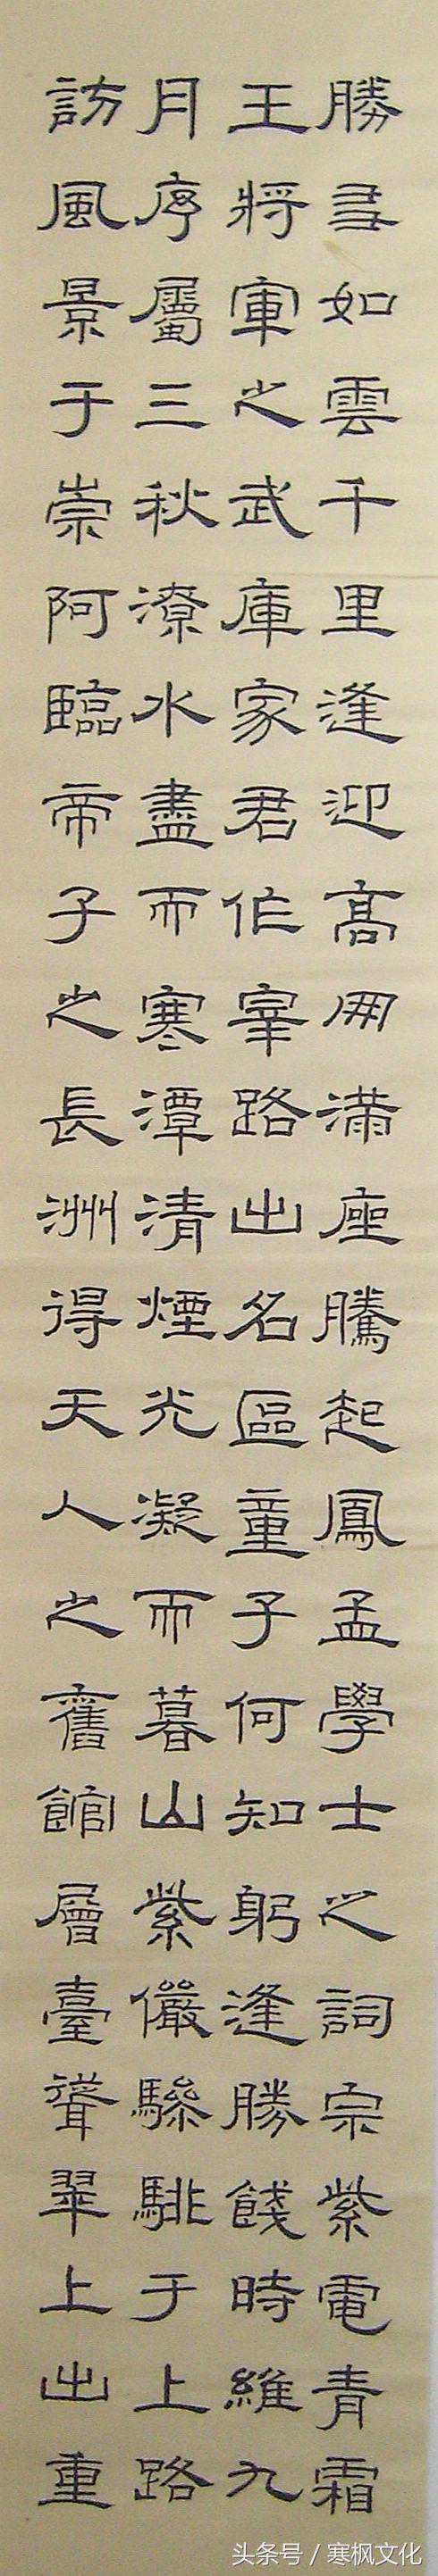 勝友如雲千里逢迎高朋滿座騰起鳳孟學士之詞宗紫電青霜
王將軍之武庫家君作宰路出名區童子何知躬逢勝餞時維九
月序屬三秋潦水盡而寒潭清煙光凝而暮山紫儼驂騑于上路
訪風景于崇阿臨帝子之長洲得天人之舊館層臺聳翠上出重
头条号 / 寒枫文化